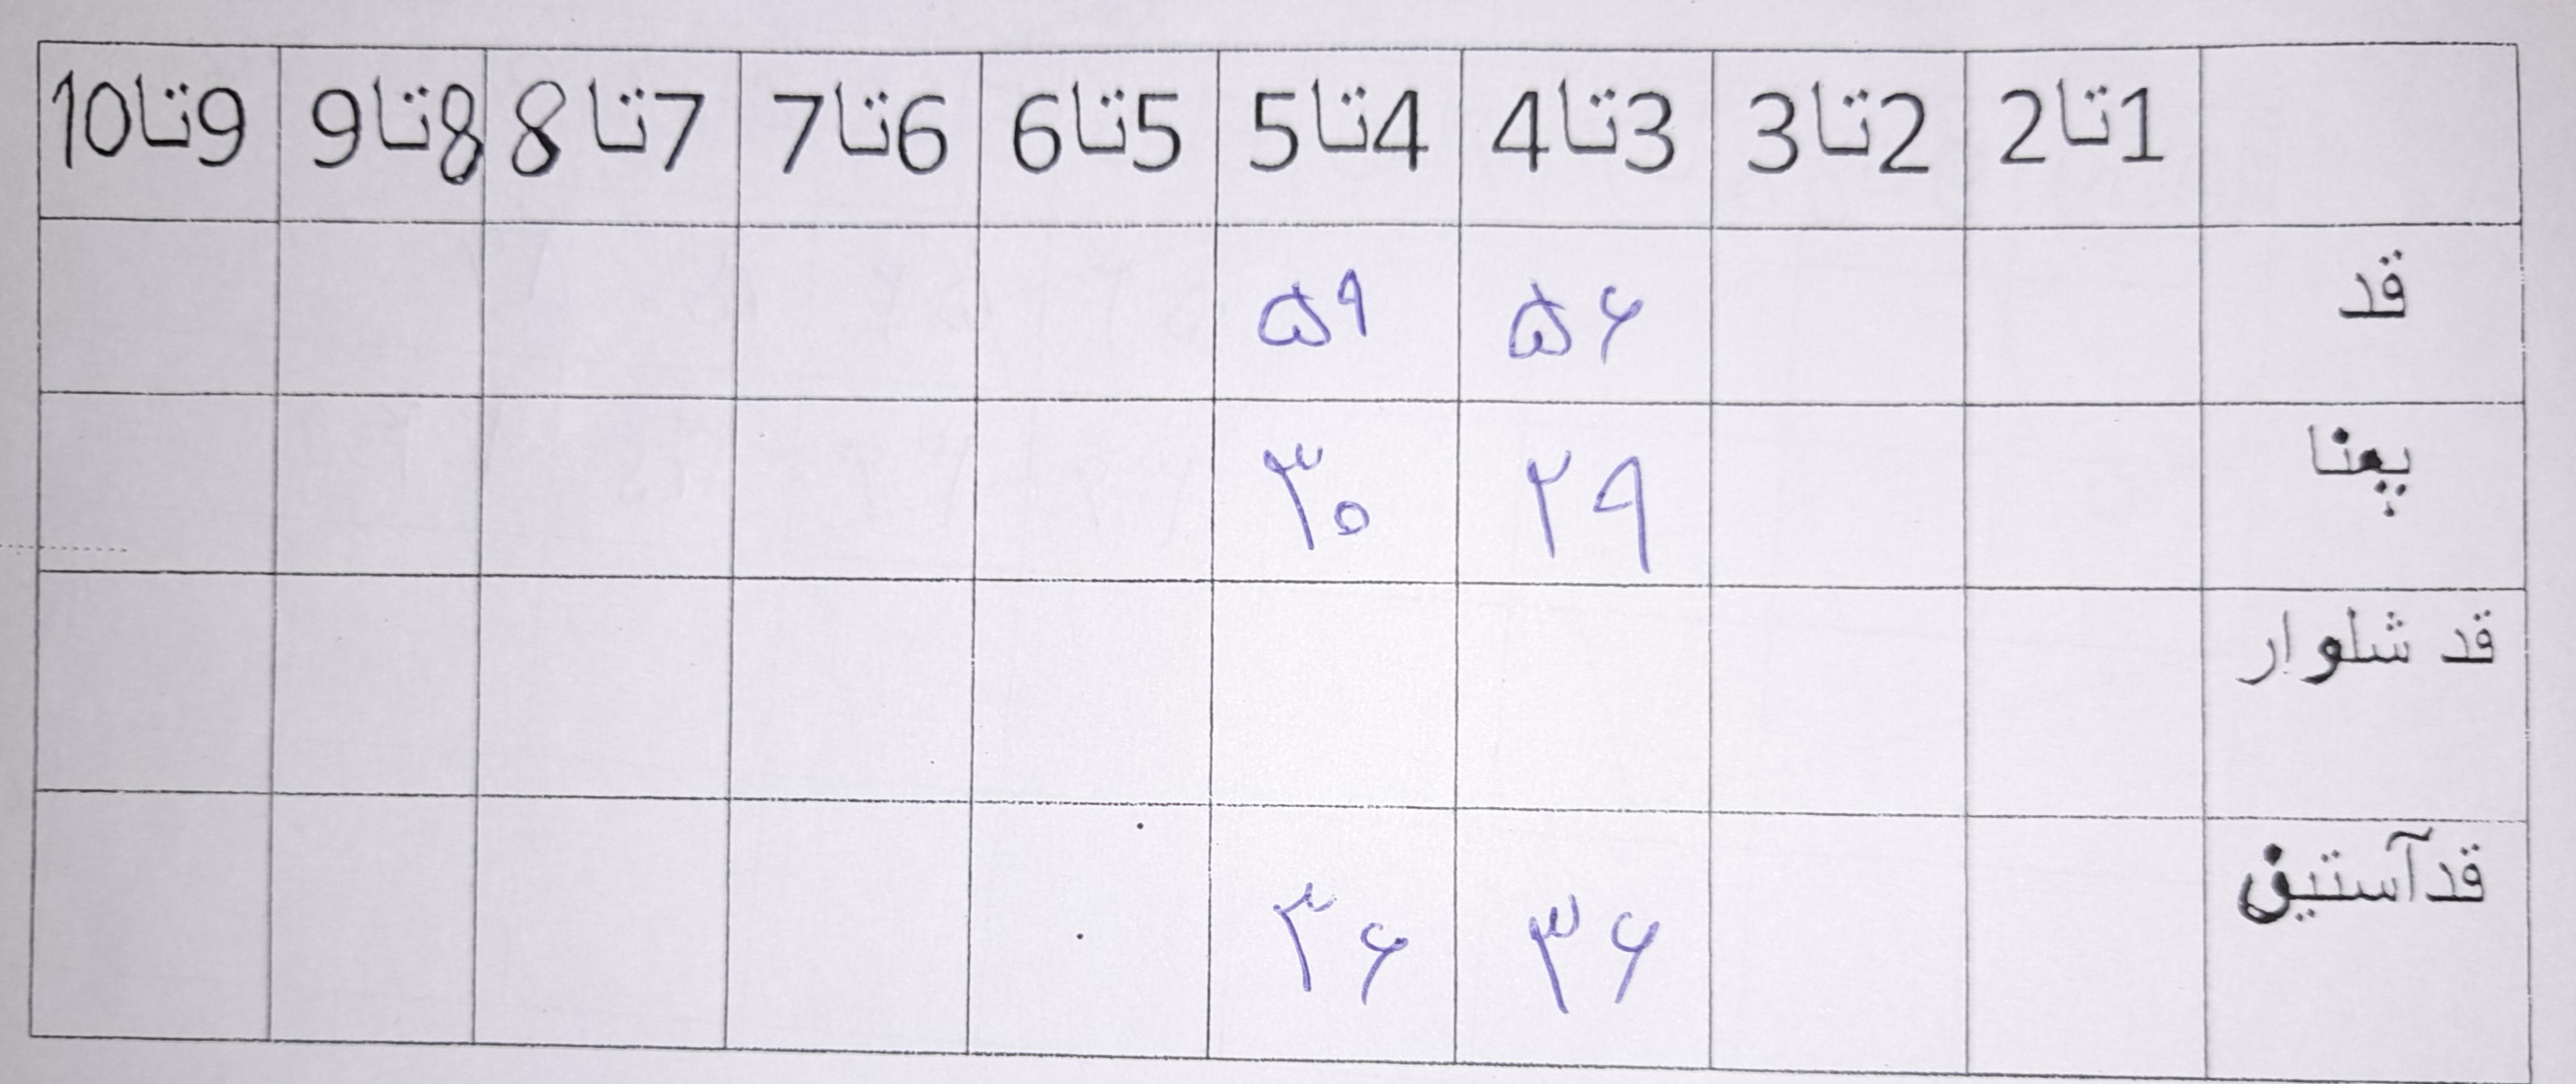 1تا2 2تا3 3تا4 4تا5 5تا6 6تا7 7تا8 8تا9 9تا10
قد ۵۶ ۵۹
پهنا ۲۹ ۳۰
قد شلوار
قدآستین ۳۶ ۳۶